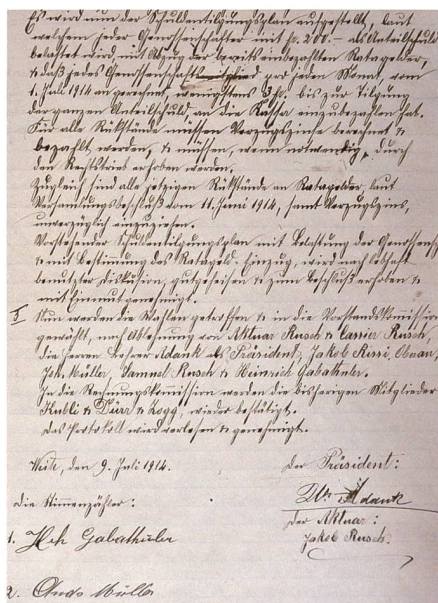 Es wird nun der Schuldentilgungsplan aufgestellt, laut
welchem jeder Genossenschafter mit fr. 200.- als Anteilschuld
belastet wird, mit Abzug der bereits einbezahlten Ratagelder,
& daß jedes Genossenschaftsmitglied pro jeden Monat, vom
1. Juli 1914 an gerechnet, wenigstens 3 fr. bis zur Tilgung
der ganzen Anteilschuld an die Kassa einzubezahlen hab.
Für alle Rükstände müssen Verzugszinse berechnet &
bezahlt werden, & müssen, wenn notwendig, durch
den Rechtstrieb erhoben werden.
Zugleich sind alle jetzigen Rükstände an Ratagelder, laut
Versamlungsbeschluß vom 11. Juni 1914, samt Verzugszins,
unverzüglich einzuziehen.
Vorstehender Schuldentilgungsplan mit Belastung der Genossensch
& mit Bestimung des Ratageld-Einzug, wird nach lebhaft
benutzter Diskusion, gutgeheisen & zum Beschluß erhoben &
mit Einmut genehmigt.
5 Nun werden die Wahlen getroffen & in die Vorstandskomission
gewählt, nach Ablehnung von Aktuar Rusch & Cassier Rusch,
die Herren Lehrer Adank als Präsident, Jakob
Joh. Müller, Samuel Rusch & Heinrich Gabathuler.
In die Rechnungskomission werden die bisherigen Mitglieder
Kubli & Dürr & wieder bestätigt.
Das Protokoll wird verlesen & genehmigt.
Weite, den 9. Juli 1914.
Der Präsident:
Adank
Die Stimmenzähler:
Der Aktuar:
Jakob Rusch.
1. Hch Gabathuler
2. Müller